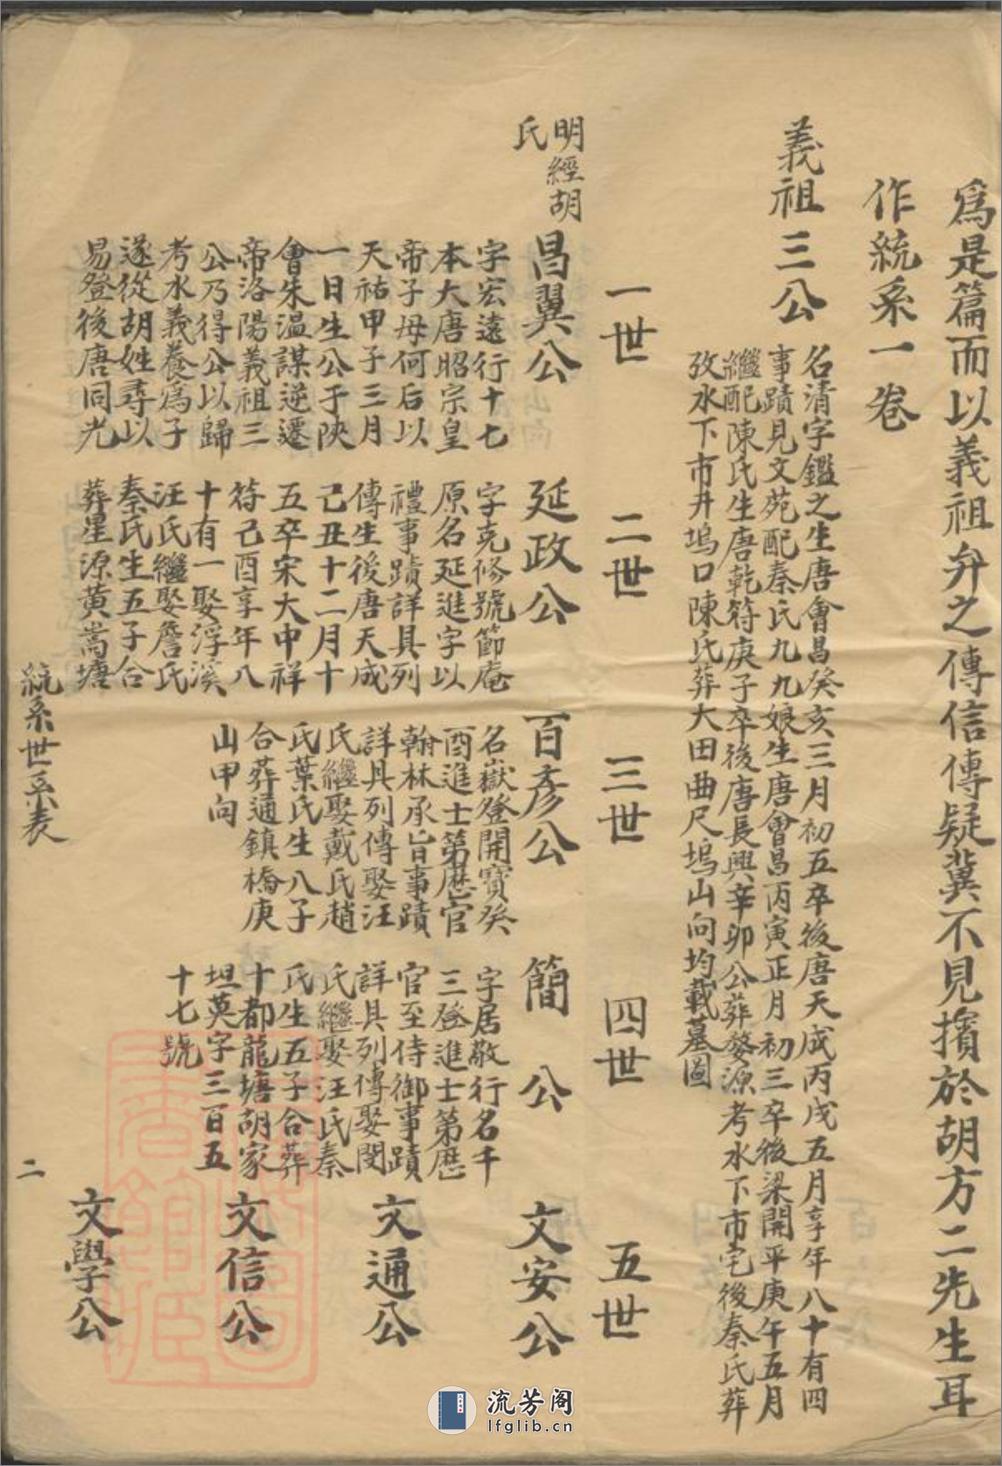 為是篇而以義祖弁之傳信傳疑冀不見擯於胡方二先生耳
作統系一卷
義祖三公
名清字鑑之生唐會昌癸亥三月初五卒後唐天成丙戌五月享年八十有四
事蹟見文苑配秦氏九九娘生唐會昌丙寅正月初三卒後梁開平庚午五月
繼配陳氏生唐乾符庚子卒後唐長興辛卯公葬婺源考水下市宅後秦氏葬
攷水下市升塢口陳氏葬大田曲尺塢山向均載墓圖
一世
二世
三世
四世
五世
明經胡
氏
昌翼公
字宏遠行十七
本大唐昭宗皇
帝子母何后以
天祐甲子三月
一日生公于陜
會朱溫謀逆遷
帝洛陽義祖三
公乃得公以歸
考水義養為子
遂從胡姓尋以
易登後唐同光
延政公
字克修號節庵
原名延進字以
禮事蹟詳具列
傳生後唐天成
己丑十二月十
五卒宋大中祥
符己酉享年八
十有一娶浮溪
汪氏繼娶詹氏
秦氏生五子合
葬星源黃嵩塘
百彥公
名嶽登開寶癸
酉進士第歷官
翰林承旨事蹟
詳具列傳娶汪
氏繼娶戴氏趙
氏葉氏生八子
合葬通鎮橋庚
山甲向
簡公
字居敬行名千
三登進士第歷
官至侍御事蹟
詳具列傳娶閔
氏繼娶汪氏秦
氏生五子合葬
十都龍塘胡家
坦英字三百五
十七號
文安公
文通公
文信公
文學公
統系世系表
二
流芳阁
lfglib.cn